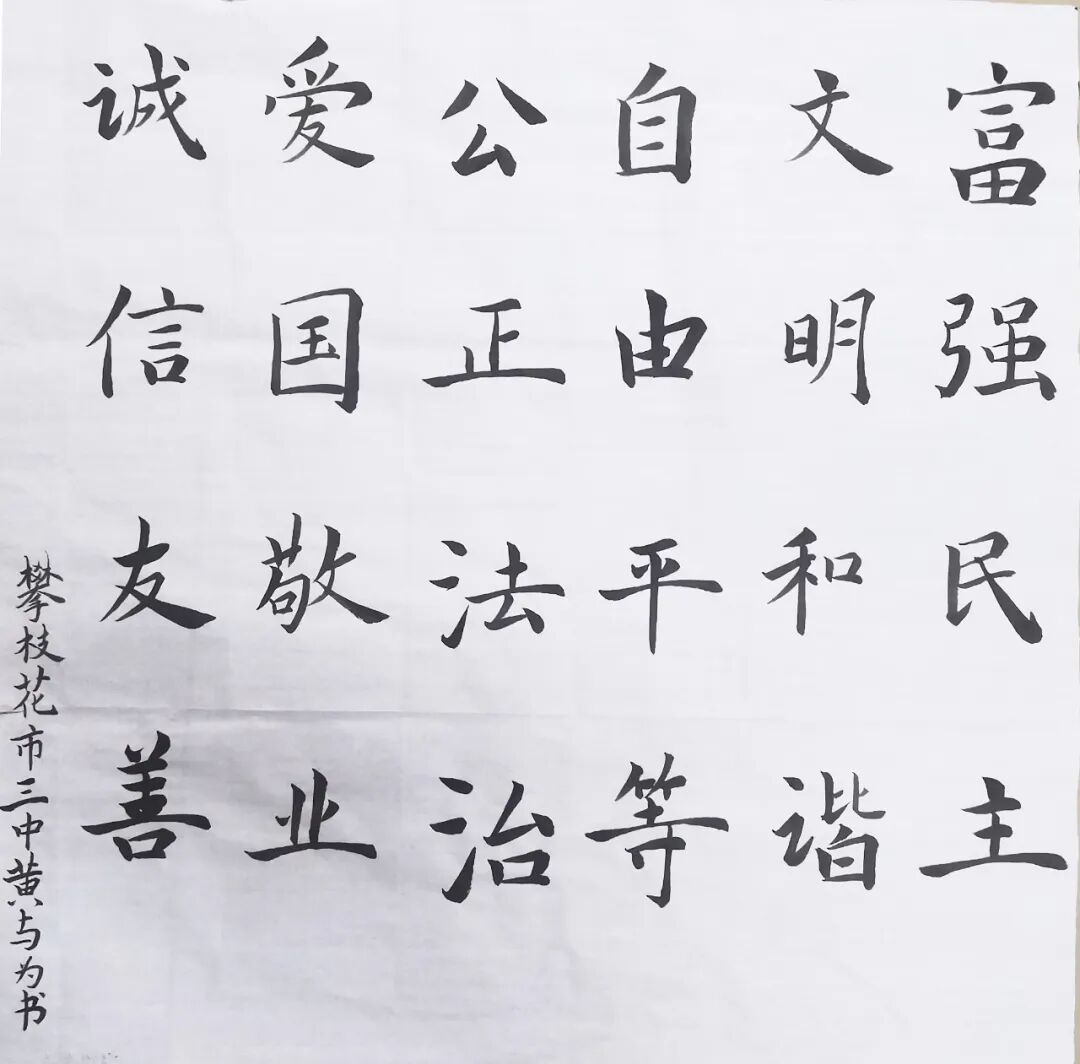 富强民主
文明和谐
自由平等
公正法治
爱国敬业
诚信友善
攀枝花市三中黄与为书